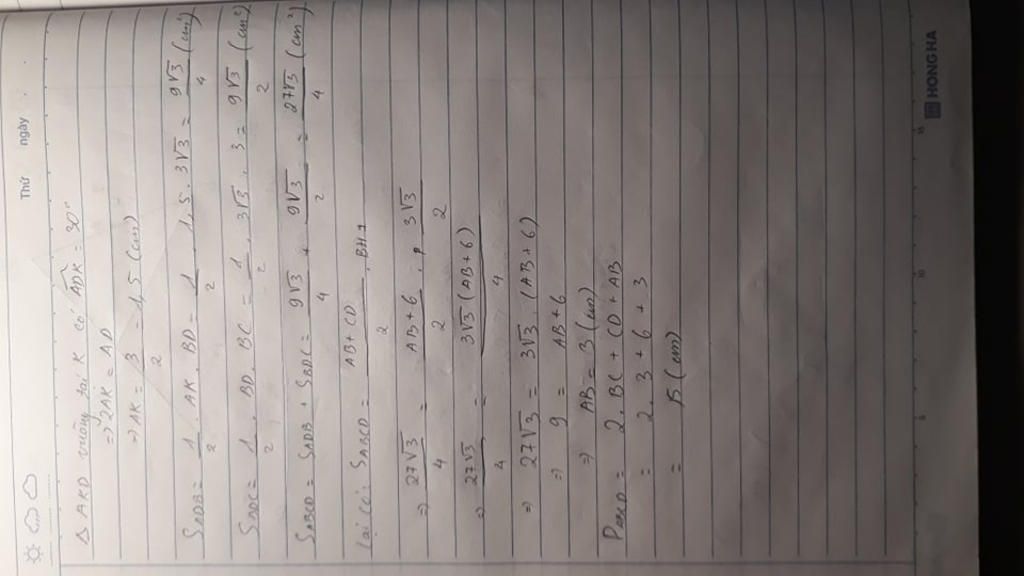 Thứ ngày
Δ AKD vuông tại K có ADK = 30°
⇒ 2AK = AD
⇒ AK = 3/2 = 1,5 (cm)
S_ADB = 1/2 . AK . BD = 1/2 . 1,5 . 3√3 = 9√3/4 (cm²)
S_BDC = 1/2 . BD . BC = 1/2 . 3√3 . 3 = 9√3/2 (cm²)
S_ABCD = S_ADB + S_BDC = 9√3/4 + 9√3/2 = 27√3/4 (cm²)
Lại có: S_ABCD = AB+CD/2 . BH
⇒ 27√3/4 = AB+6/2 . 3√3/2
⇒ 27√3/4 = 3√3(AB+6)/4
⇒ 27√3 = 3√3 . (AB+6)
⇒ 9 = AB+6
⇒ AB = 3 (cm)
P_ABCD = 2.BC + CD + AB
= 2.3 + 6 + 3
= 15 (cm)
HONG HA